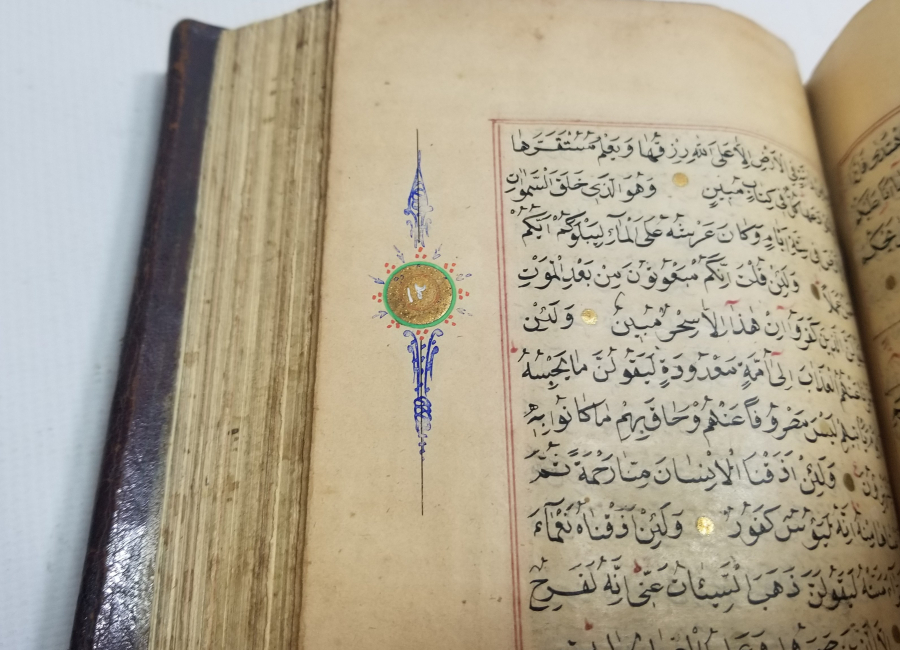 ١٢
فِي الْاَرْضِ اِلَّا عَلَى اللّٰهِ رِزْقُهَا وَيَعْلَمُ مُسْتَقَرَّهَا
كُلٌّ فِي كِتَابٍ مُبِينٍ وَهُوَ الَّذِي خَلَقَ السَّمٰوَاتِ
فِي سِتَّةِ اَيَّامٍ وَكَانَ عَرْشُهُ عَلَى الْمَاءِ لِيَبْلُوَكُمْ اَيُّكُمْ
عَمَلًا وَلَئِنْ قُلْتَ اِنَّكُمْ مَبْعُوثُونَ مِنْ بَعْدِ الْمَوْتِ
الَّذِينَ كَفَرُوا اِنْ هٰذَا اِلَّا سِحْرٌ مُبِينٌ وَلَئِنْ
عَنْهُمُ الْعَذَابَ اِلٰى اُمَّةٍ مَعْدُودَةٍ لَيَقُولُنَّ مَا يَحْبِسُهُ
لَيْسَ مَصْرُوفًا عَنْهُمْ وَحَاقَ بِهِمْ مَا كَانُوا بِهِ
وَلَئِنْ اَذَقْنَا الْاِنْسَانَ مِنَّا رَحْمَةً ثُمَّ
مِنْهُ اِنَّهُ لَيَؤُسٌ كَفُورٌ وَلَئِنْ اَذَقْنَاهُ نَعْمَاءَ
مَسَّتْهُ لَيَقُولَنَّ ذَهَبَ السَّيِّئَاتُ عَنِّي اِنَّهُ لَفَرِحٌ